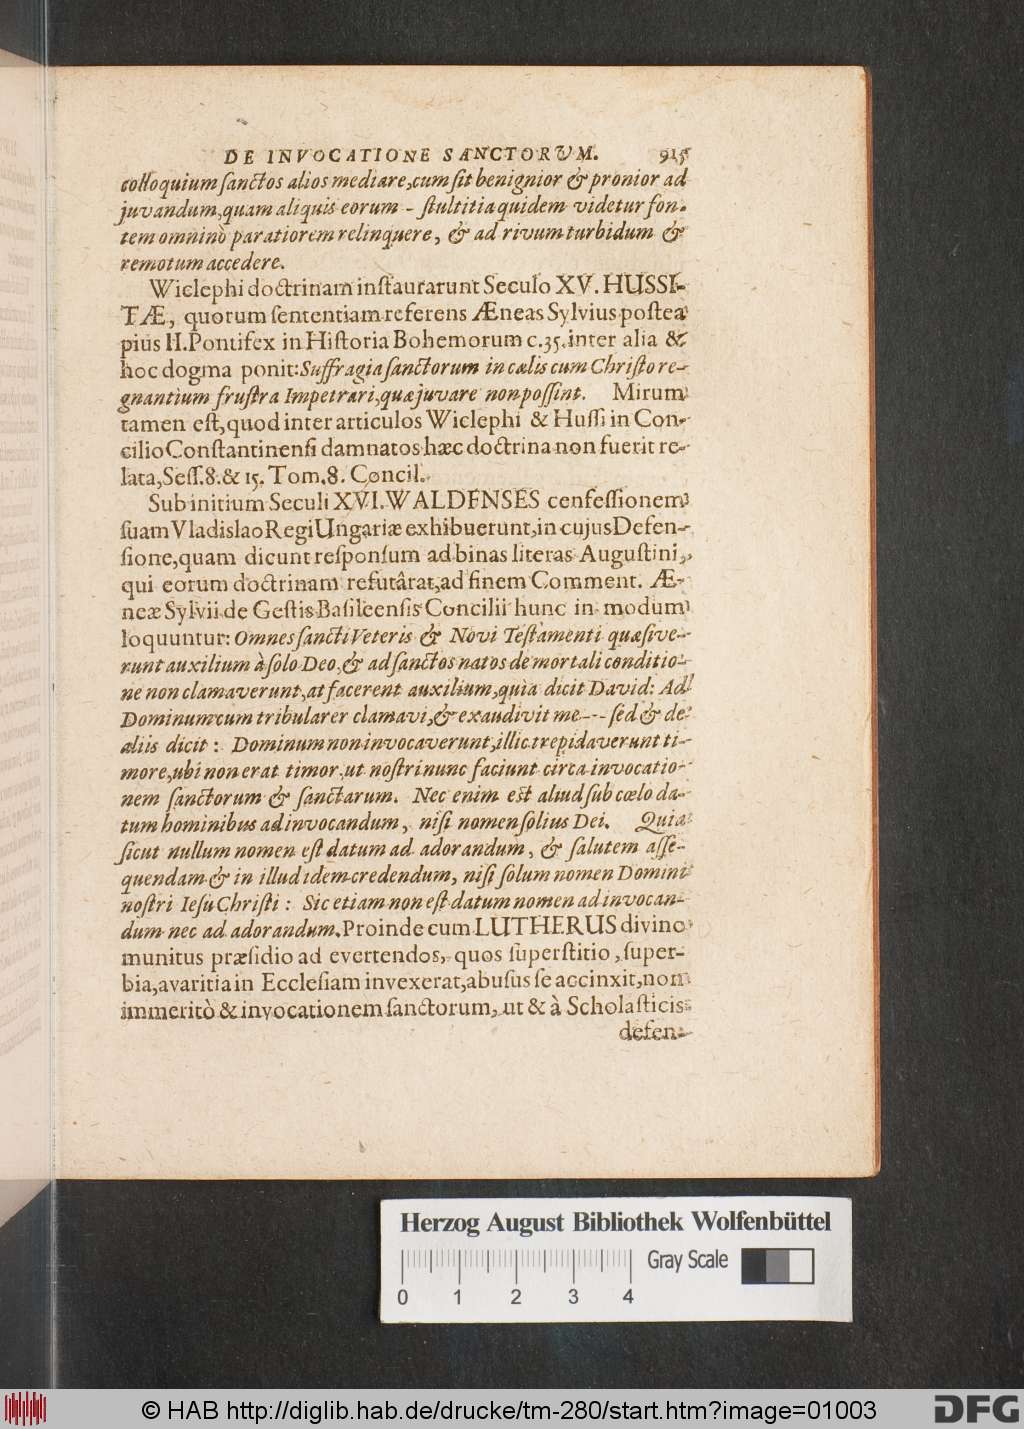 DE INVOCATIONE SANCTORUM. 915
colloquium sanctos alios mediare, cum sit benignior & pronior ad
juvandum, quam aliquis eorum - stultitia quidem videtur fon-
tem omninò paratiorem relinquere, & ad rivum turbidum &
remotum accedere.
Wiclephi doctrinam instaurarunt Seculo XV. HUSSI-
TÆ, quorum sententiam referens Æneas Sylvius postea
pius II. Pontifex in Historia Bohemorum c. 35. inter alia &
hoc dogma ponit: Suffragia sanctorum in cælis cum Christo re-
gnantium frustra Impetrari, quæ juvare non possint. Mirum
tamen est, quod inter articulos Wiclephi & Hussi in Con-
cilio Constantinensi damnatos hæc doctrina non fuerit re-
lata, Sess. 8. & 15. Tom. 8. Concil.
Sub initium Seculi XVI. WALDENSES cenfessionem
suam Vladislao Regi Ungariæ exhibuerunt, in cujus Defen-
sione, quam dicunt responsum ad binas literas Augustini,
qui eorum doctrinam refutârat, ad finem Comment. Æ-
neæ Sylvii de Gestis Basileensis Concilii hunc in modum
loquuntur: Omnes sancti Veteris & Novi Testamenti quæsive-
runt auxilium à solo Deo, & ad sanctos natos de mortali conditio-
ne non clamaverunt, at facerent auxilium, quia dicit David: Ad
Dominum cum tribularer clamavi, & exaudivit me --- sed & de
aliis dicit: Dominum non invocaverunt, illic trepidaverunt ti-
more, ubi non erat timor, ut nostri nunc faciunt circa invocatio-
nem sanctorum & sanctarum. Nec enim est aliud sub cœlo da-
tum hominibus ad invocandum, nisi nomen solius Dei. Quia
sicut nullum nomen est datum ad adorandum, & salutem asse-
quendam & in illud idem credendum, nisi solum nomen Domini
nostri Iesu Christi: Sic etiam non est datum nomen ad invocan-
dum nec ad adorandum. Proinde cum LUTHERUS divino
munitus præsidio ad evertendos, quos superstitio, super-
bia, avaritia in Ecclesiam invexerat, abusus se accinxit, non
immeritò & invocationem sanctorum, ut & à Scholasticis
defen-
Herzog August Bibliothek Wolfenbüttel
Gray Scale
0 1 2 3 4
© HAB http://diglib.hab.de/drucke/tm-280/start.htm?image=01003
DFG